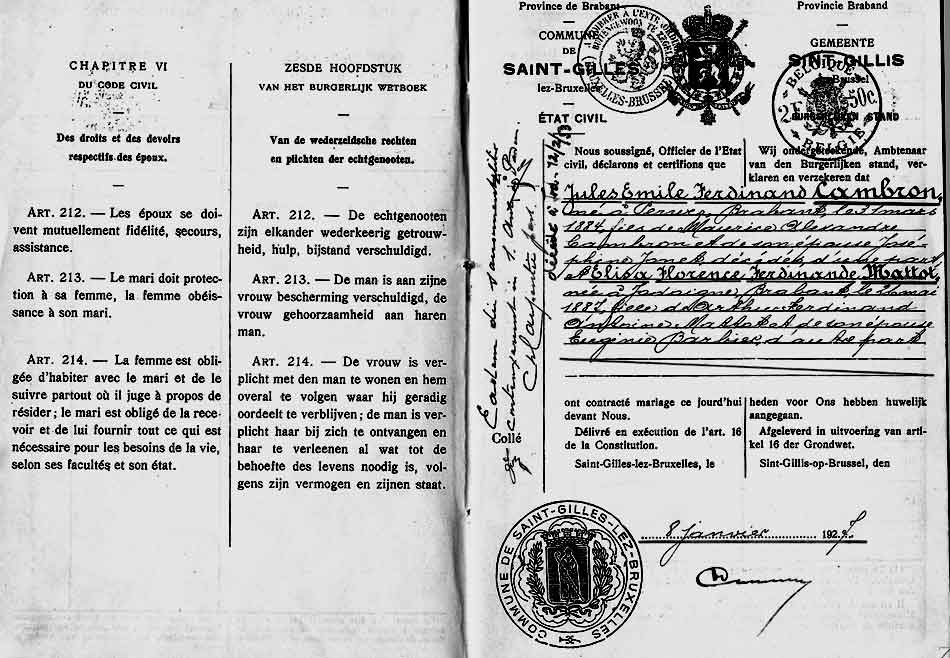 CHAPITRE VI
DU CODE CIVIL
Des droits et des devoirs
respectifs des époux.
ART. 212. — Les époux se doi-
vent mutuellement fidélité, secours,
assistance.
ART. 213. — Le mari doit protec-
tion à sa femme, la femme obéis-
sance à son mari.
ART. 214. — La femme est obli-
gée d'habiter avec le mari et de le
suivre partout où il juge à propos de
résider; le mari est obligé de la rece-
voir et de lui fournir tout ce qui est
nécessaire pour les besoins de la vie,
selon ses facultés et son état.
ZESDE HOOFDSTUK
VAN HET BURGERLIJK WETBOEK
Van de wederzeidsche rechten
en plichten der echtgenooten.
ART. 212. — De echtgenooten
zijn elkander wederkeerig getrouw-
heid, hulp, bijstand verschuldigd.
ART. 213. — De man is aan zijne
vrouw bescherming verschuldigd, de
vrouw gehoorzaamheid aan haren
man.
ART. 214. — De vrouw is ver-
plicht met den man te wonen en hem
overal te volgen waar hij geradig
oordeelt te verblijven; de man is ver-
plicht haar bij zich te ontvangen en
haar te verleenen al wat tot de
behoefte des levens noodig is, vol-
gens zijn vermogen en zijnen staat.
Province de Brabant
COMMUNE
DE
SAINT-GILLES
lez-Bruxelles
ÉTAT CIVIL
Provincie Braband
GEMEENTE
SINT-GILLIS
Brussel
BURGERLIJKEN STAND
BELGIQUE
2F 50c.
BELGIË
Nous soussigné, Officier de l'Etat
civil, déclarons et certifions que
Wij ondergeteekende, Ambtenaar
van den Burgerlijken stand, ver-
klaren en verzekeren dat
Jules Emile Ferdinand Lambron,
né à Perwez, Brabant, le 31 mars
1884, fils de Maurice Alexandre
Lambron et de son épouse José-
phine Jonet, décédés, d'une part
et Elisa Florence Ferdinande Mattot,
née à Jodoigne, Brabant, le 21 mai
1887, fille d'Arthur Ferdinand
Antoine Mattot et de son épouse
Eugénie Barbier, d'autre part
ont contracté mariage ce jourd'hui
devant Nous.
Délivré en exécution de l'art. 16
de la Constitution.
Saint-Gilles-lez-Bruxelles, le
heden voor Ons hebben huwelijk
aangegaan.
Afgeleverd in uitvoering van arti-
kel 16 der Grondwet.
Sint-Gillis-op-Brussel, den
8 janvier 1927.
Collé
COMMUNE DE SAINT-GILLES-LEZ-BRUXELLES